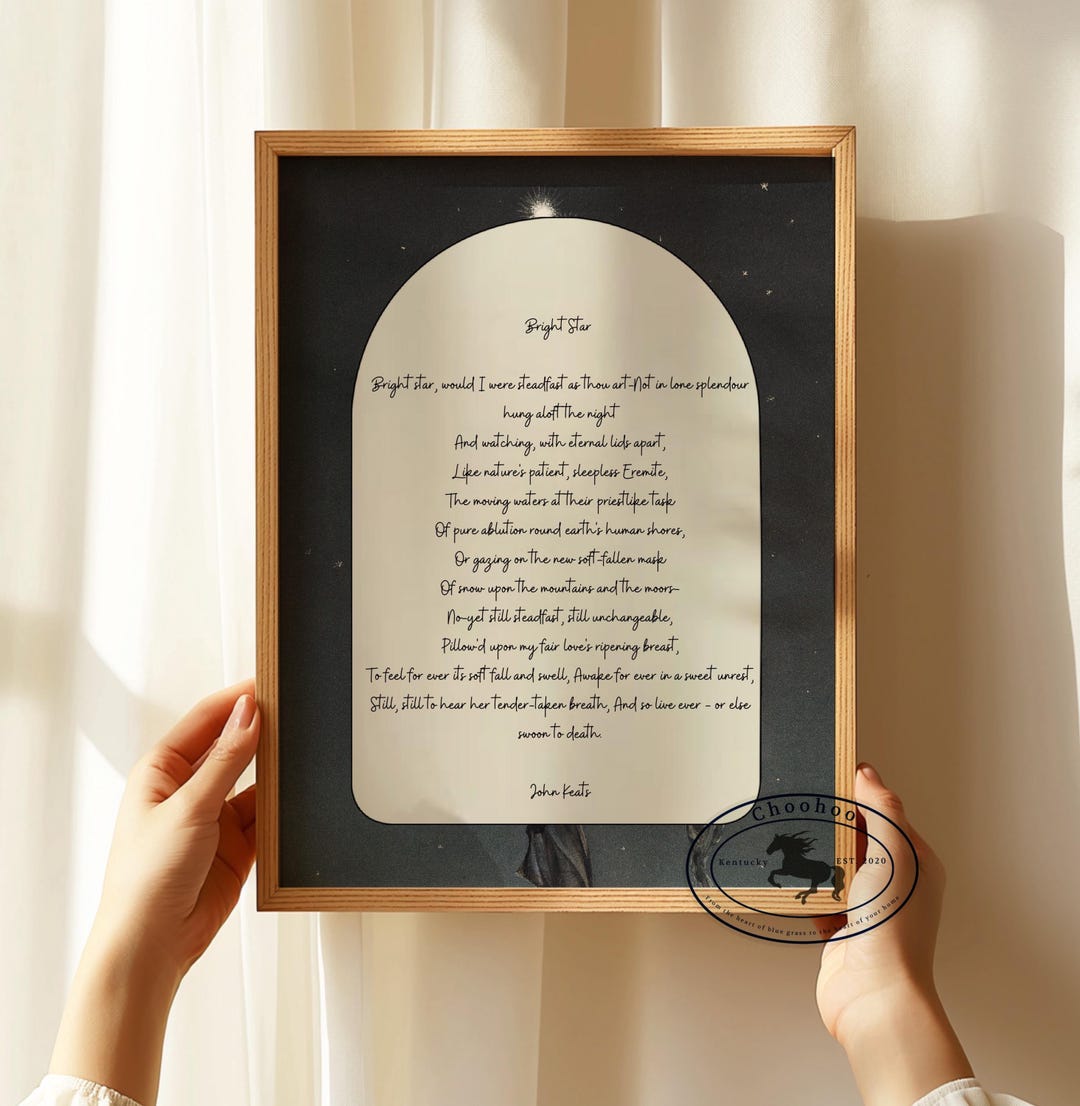 Bright Star
Bright star, would I were steadfast as thou art-Not in lone splendour
hung aloft the night
And watching, with eternal lids apart,
Like nature's patient, sleepless Eremite,
The moving waters at their priestlike task
Of pure ablution round earth's human shores,
Or gazing on the new soft-fallen mask
Of snow upon the mountains and the moors-
No-yet still steadfast, still unchangeable,
Pillow'd upon my fair love's ripening breast,
To feel for ever its soft fall and swell, Awake for ever in a sweet unrest,
Still, still to hear her tender-taken breath, And so live ever - or else
swoon to death.
John Keats
Choohoo
Kentucky
EST. 2020
From the heart of blue grass to the heart of your home